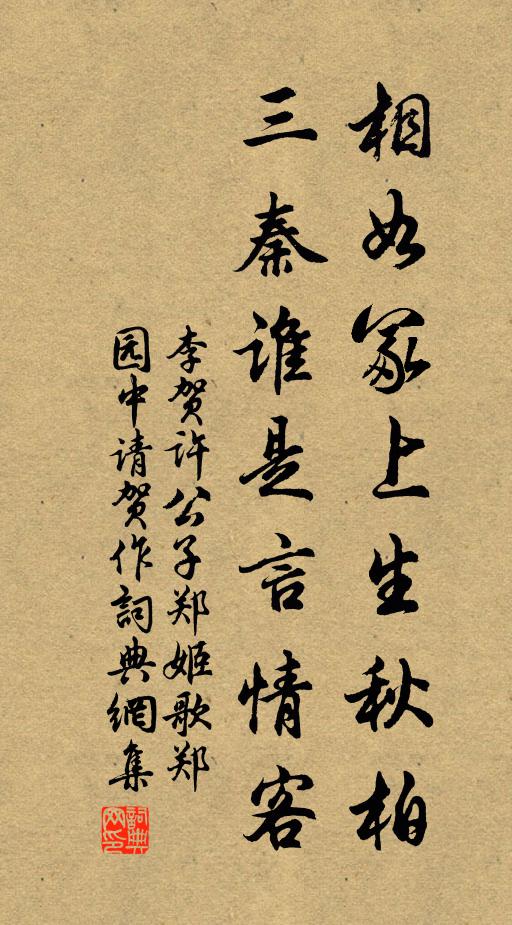 相如冢上生秋柏
三秦谁是言情客
李贺许公子郑姬歌郑
园中请贺作詞典網集
詞典网印